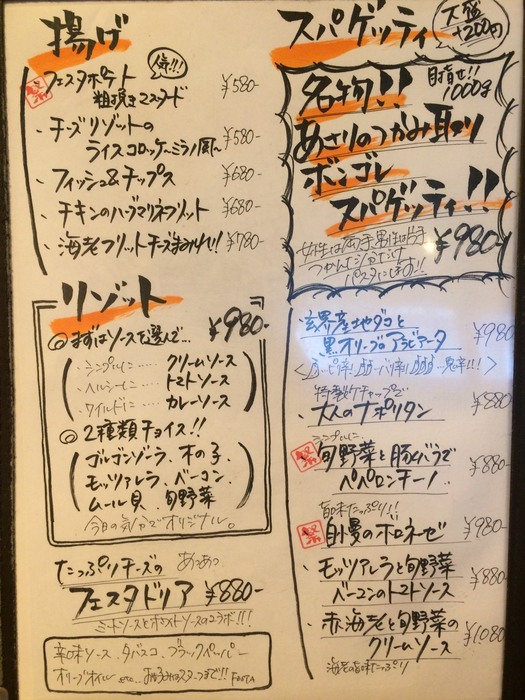 揚げ
人気!!!
フェスタポテト
粗挽きマスタード
¥580-
・チーズリゾットの
ライスコロッケ〜ミラノ風〜
¥580-
・フィッシュ&チップス
¥680-
・チキンのハーブマリネフリット
¥680-
・海老フリットチーズまみれ!
¥780-
リゾット
¥980-
◎まずはソースを選んで…
・シンプルに……クリームソース
・ヘルシーに……トマトソース
・ワイルドに……カレーソース
◎2種類チョイス!!
ゴルゴンゾーラ、木の子
モッツァレラ、ベーコン
ムール貝、旬野菜
今日の気分でオリジナル。
たっぷりチーズの
あつあつ
フェスタドリア
¥880-
ミートソースとホワイトソースのコラボ!!!
辛味ソース、タバスコ、ブラックペッパー
オリーブオイル etc…お好みカスタマイズで!! FESTA
スパゲッティ
大盛
+200円
名物!!
目指せ!!
1000g
あさりのつかみ取り
ボンゴレ
スパゲッティ!!
¥980-
女性は両手、男性は片手
つかんだ分だけ
パスタにします!!
玄界産地ダコと
黒オリーブのアラビアータ
¥980
特製ケチャップで
・大人のナポリタン
¥880-
シンプルに
旬野菜と豚バラで
ペペロンチーノ
¥880-
旨味たっぷり!!
自慢のボロネーゼ
¥980-
・モッツァレラと旬野菜
ベーコンのトマトソース
¥880-
・赤海老と旬野菜の
クリームソース
¥1,080
海老の旨味たっぷり